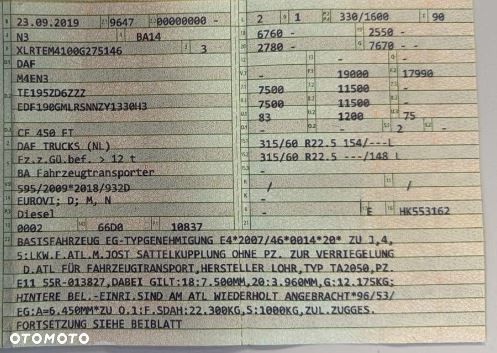 23.09.2019 9647 00000000 -
N3 BA14
XLRTEM4100G275146 3
DAF
M4EN3
TE195ZD6ZZZ
EDF190GMLRSNNZY1330H3
CF 450 FT
DAF TRUCKS (NL)
Fz.z.Gü.bef. > 12 t
BA Fahrzeugtransporter
595/2009*2018/932D
EUROVI; D; M, N
Diesel
0002 66D0 10837
2 1 330/1600 90
6760 - 2550 -
2780 - 7670 - -
- -
- 19000 17990
7500 11500 -
7500 11500 -
83 1200 75
- - 2 -
315/60 R22.5 154/---L
315/60 R22.5 ---/148 L
-
- / /
-
- E HK553162
BASISFAHRZEUG EG-TYPGENEHMIGUNG E4*2007/46*0014*20* ZU J,4,
5:LKW.F.ATL.M.JOST SATTELKUPPLUNG OHNE PZ. ZUR VERRIEGELUNG
D.ATL FÜR FAHRZEUGTRANSPORT,HERSTELLER LOHR,TYP TA2050,PZ.
E11 55R-013827,DABEI GILT:18:7.500MM,20:3.960MM,G:12.175KG;
HINTERE BEL.-EINRI.SIND AM ATL WIEDERHOLT ANGEBRACHT*96/53/
EG:A=6.450MM*ZU O.1:F.SDAH:22.300KG,S:1000KG,ZUL.ZUGGES.
FORTSETZUNG SIEHE BEIBLATT
OTOMOTO